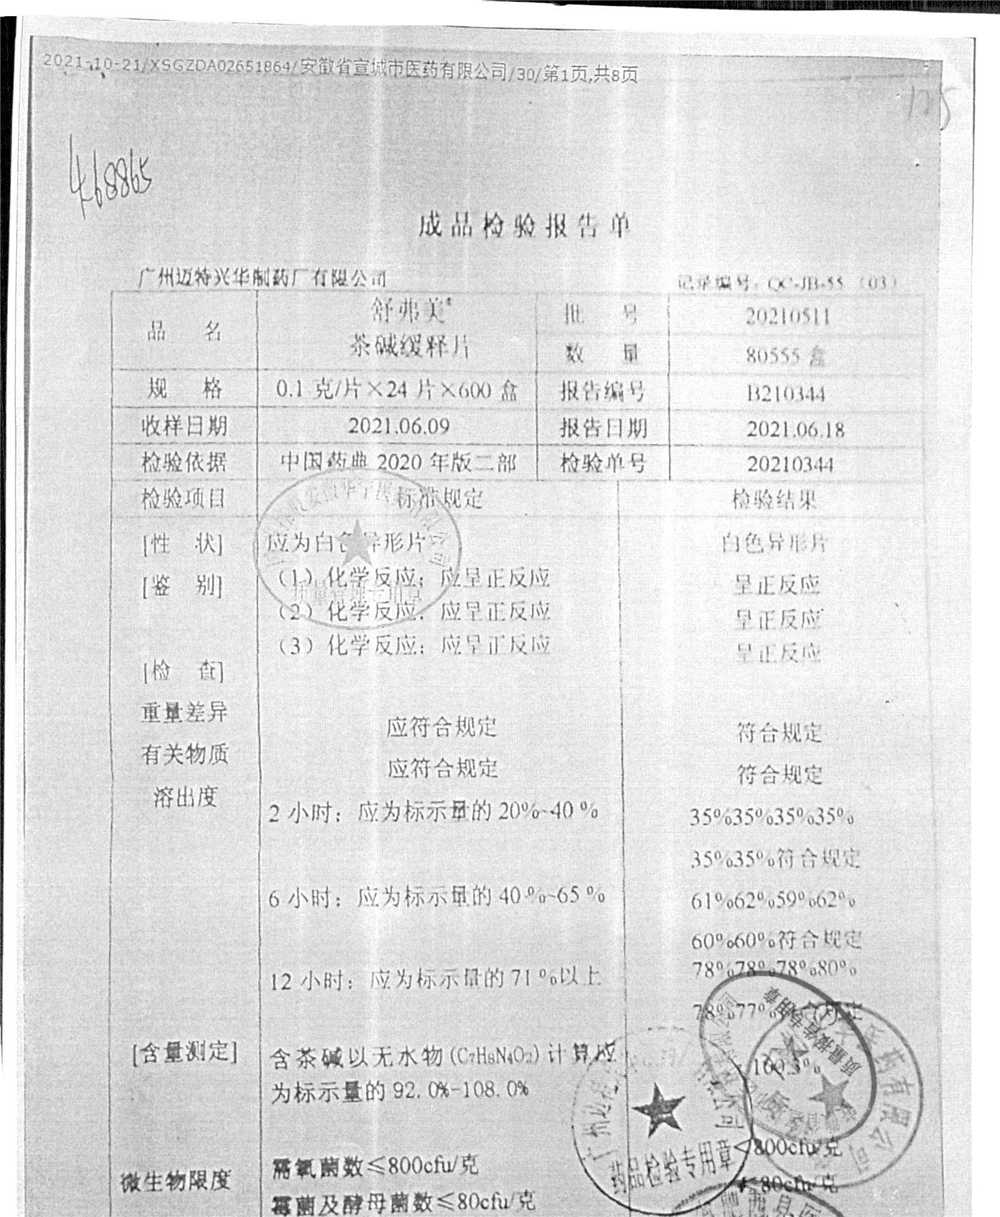 2021-10-21/XSGZDA02651864/安徽省宣城市医药有限公司/30/第1页,共8页
125
468895
成品检验报告单
广州迈特兴华制药厂有限公司 记录编号：QC-JB-55（03）
品 名 舒弗美® 茶碱缓释片 批 号 20210511
数 量 80555 盒
规 格 0.1 克/片×24 片×600 盒 报告编号 B210344
收样日期 2021.06.09 报告日期 2021.06.18
检验依据 中国药典 2020 年版二部 检验单号 20210344
检验项目 标准规定 检验结果
[性 状] 应为白色异形片 白色异形片
[鉴 别] （1）化学反应：应呈正反应 呈正反应
（2）化学反应：应呈正反应 呈正反应
（3）化学反应：应呈正反应 呈正反应
[检 查]
重量差异 应符合规定 符合规定
有关物质 应符合规定 符合规定
溶出度 2 小时：应为标示量的 20%~40 % 35%35%35%35%
35%35%符合规定
6 小时：应为标示量的 40 %~65 % 61%62%59%62%
60%60%符合规定
12 小时：应为标示量的 71 %以上 78%78%78%80%
78%77%
[含量测定] 含茶碱以无水物(C7H8N4O2)计算应 100.3%
为标示量的 92.0%-108.0%
微生物限度 需氧菌数≤800cfu/克 <800cfu/克
霉菌及酵母菌数≤80cfu/克 <80cfu/克
药品检验专用章